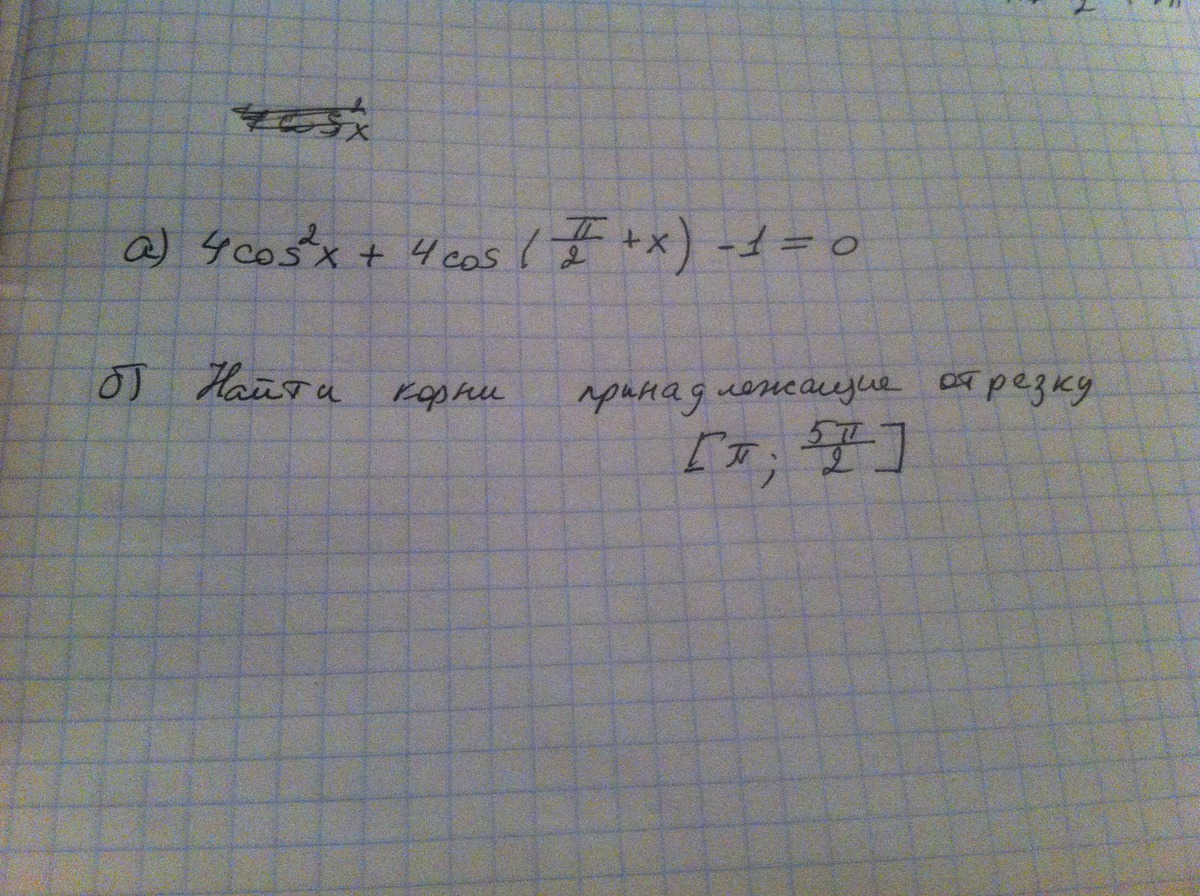 4cos²x
а) 4cos²x + 4cos(π/2 + x) - 1 = 0
б) Найти корни принадлежащие отрезку
[π; 5π/2]